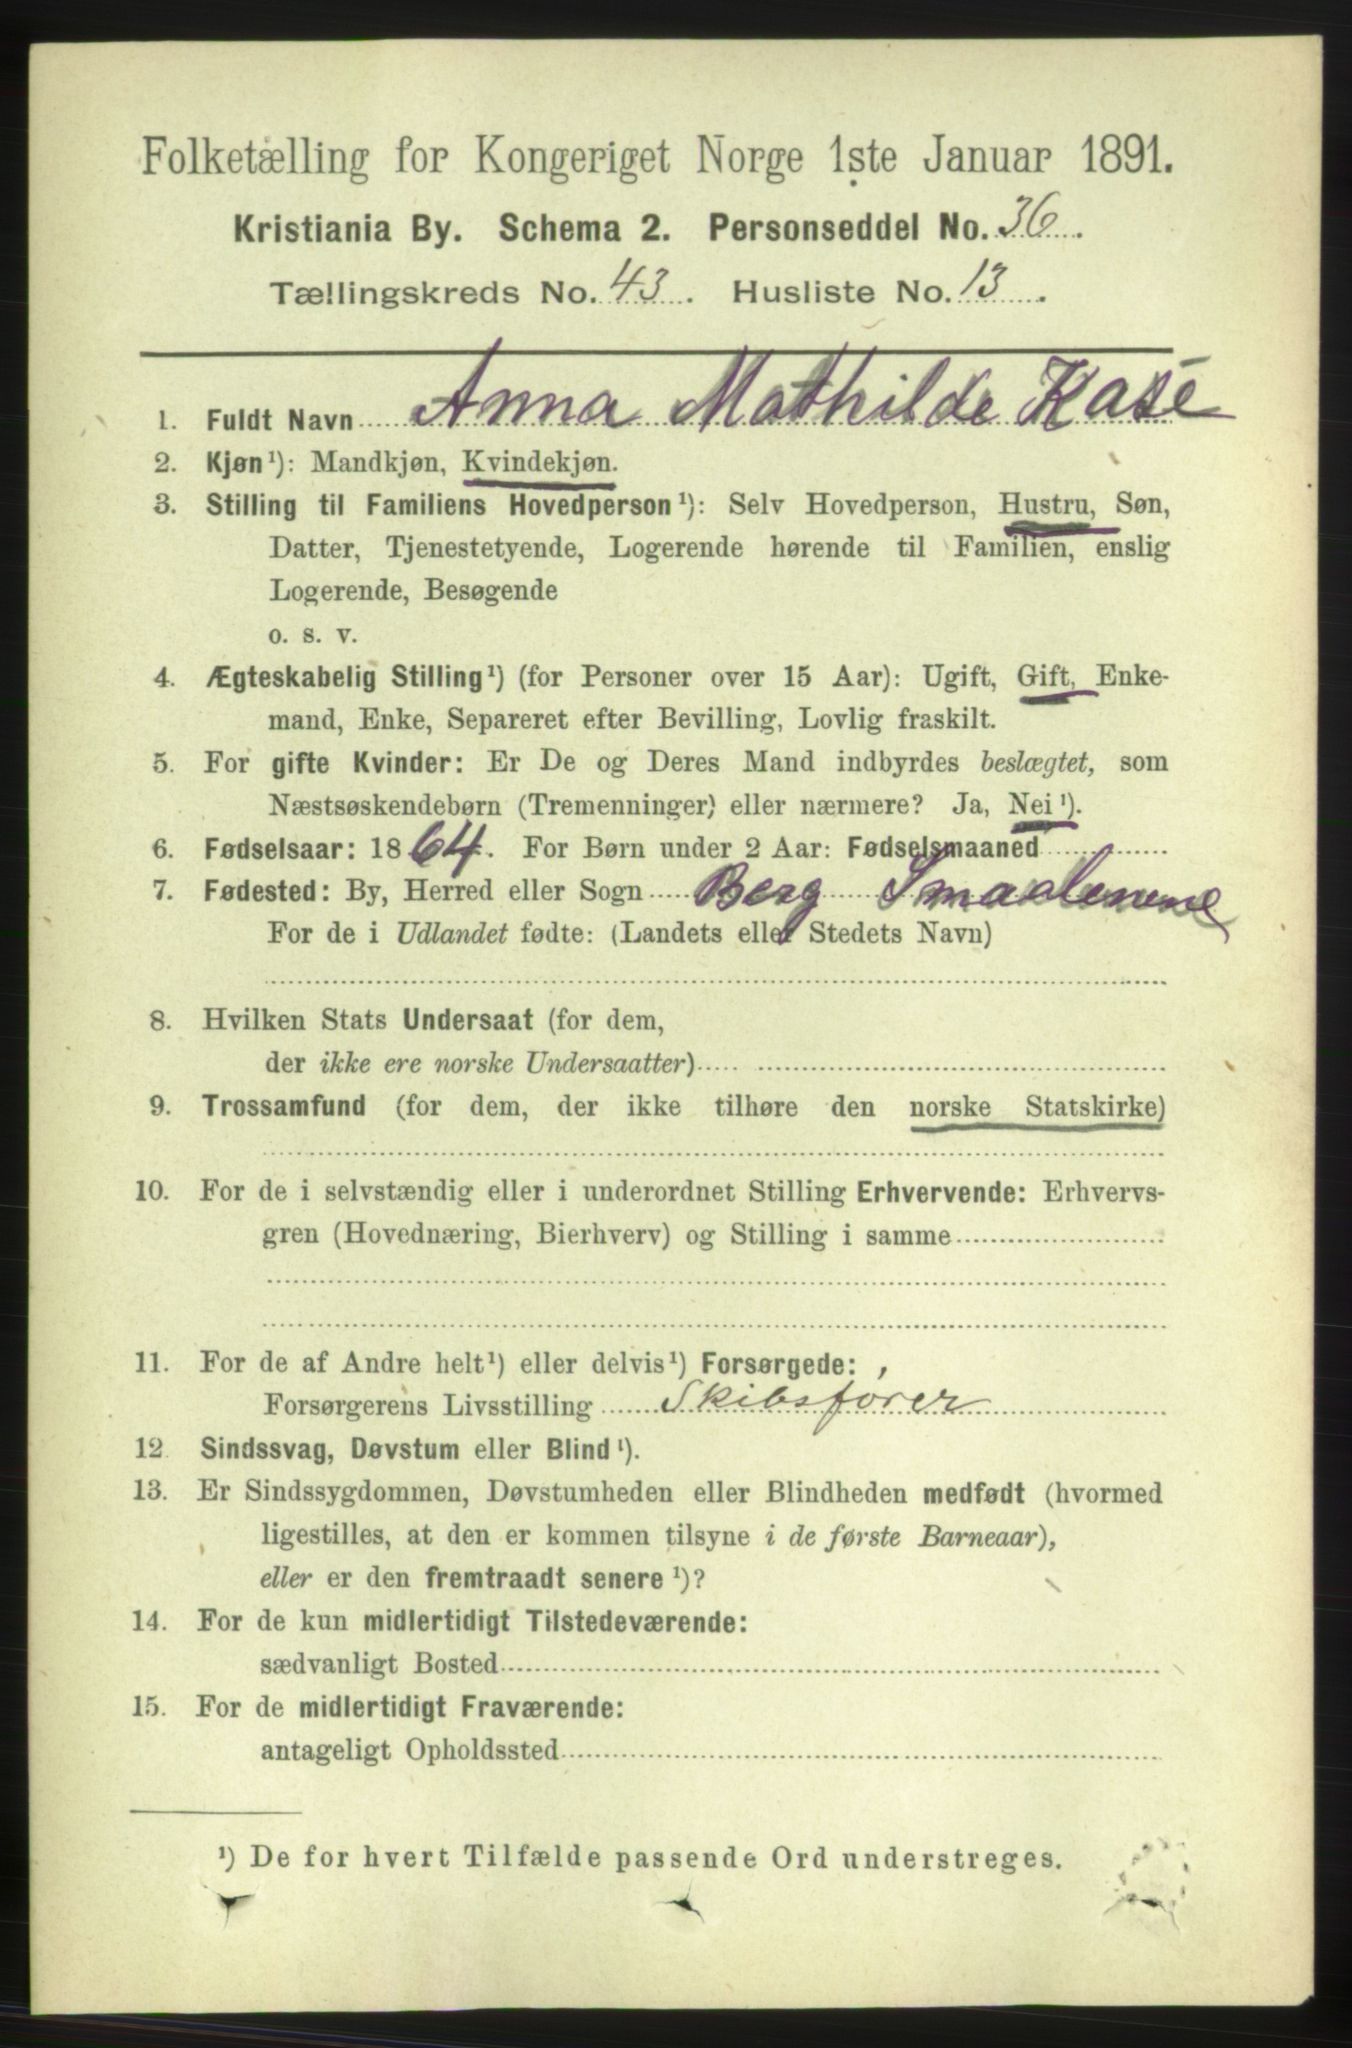 Folketælling for Kongeriget Norge 1ste Januar 1891.
Kristiania By. Schema 2. Personseddel No. 36.
Tællingskreds No. 43. Husliste No. 13.
1. Fuldt Navn Anna Mathilde Kase
2. Kjøn¹): Mandkjøn, Kvindekjøn.
3. Stilling til Familiens Hovedperson¹): Selv Hovedperson, Hustru, Søn,
Datter, Tjenestetyende, Logerende hørende til Familien, enslig
Logerende, Besøgende
o. s. v.
4. Ægteskabelig Stilling¹) (for Personer over 15 Aar): Ugift, Gift, Enke-
mand, Enke, Separeret efter Bevilling, Lovlig fraskilt.
5. For gifte Kvinder: Er De og Deres Mand indbyrdes beslægtet, som
Næstsøskendebørn (Tremenninger) eller nærmere? Ja, Nei¹).
6. Fødselsaar: 1864. For Børn under 2 Aar: Fødselsmaaned
7. Fødested: By, Herred eller Sogn Berg Smaalenene
For de i Udlandet fødte: (Landets eller Stedets Navn)
8. Hvilken Stats Undersaat (for dem,
der ikke ere norske Undersaatter)
9. Trossamfund (for dem, der ikke tilhøre den norske Statskirke)
10. For de i selvstændig eller i underordnet Stilling Erhvervende: Erhvervs-
gren (Hovednæring, Bierhverv) og Stilling i samme
11. For de af Andre helt¹) eller delvis¹) Forsørgede:
Forsørgerens Livsstilling Skibsfører
12. Sindssvag, Døvstum eller Blind¹).
13. Er Sindssygdommen, Døvstumheden eller Blindheden medfødt (hvormed
ligestilles, at den er kommen tilsyne i de første Barneaar),
eller er den fremtraadt senere¹)?
14. For de kun midlertidigt Tilstedeværende:
sædvanligt Bosted
15. For de midlertidigt Fraværende:
antageligt Opholdssted
¹) De for hvert Tilfælde passende Ord understreges.